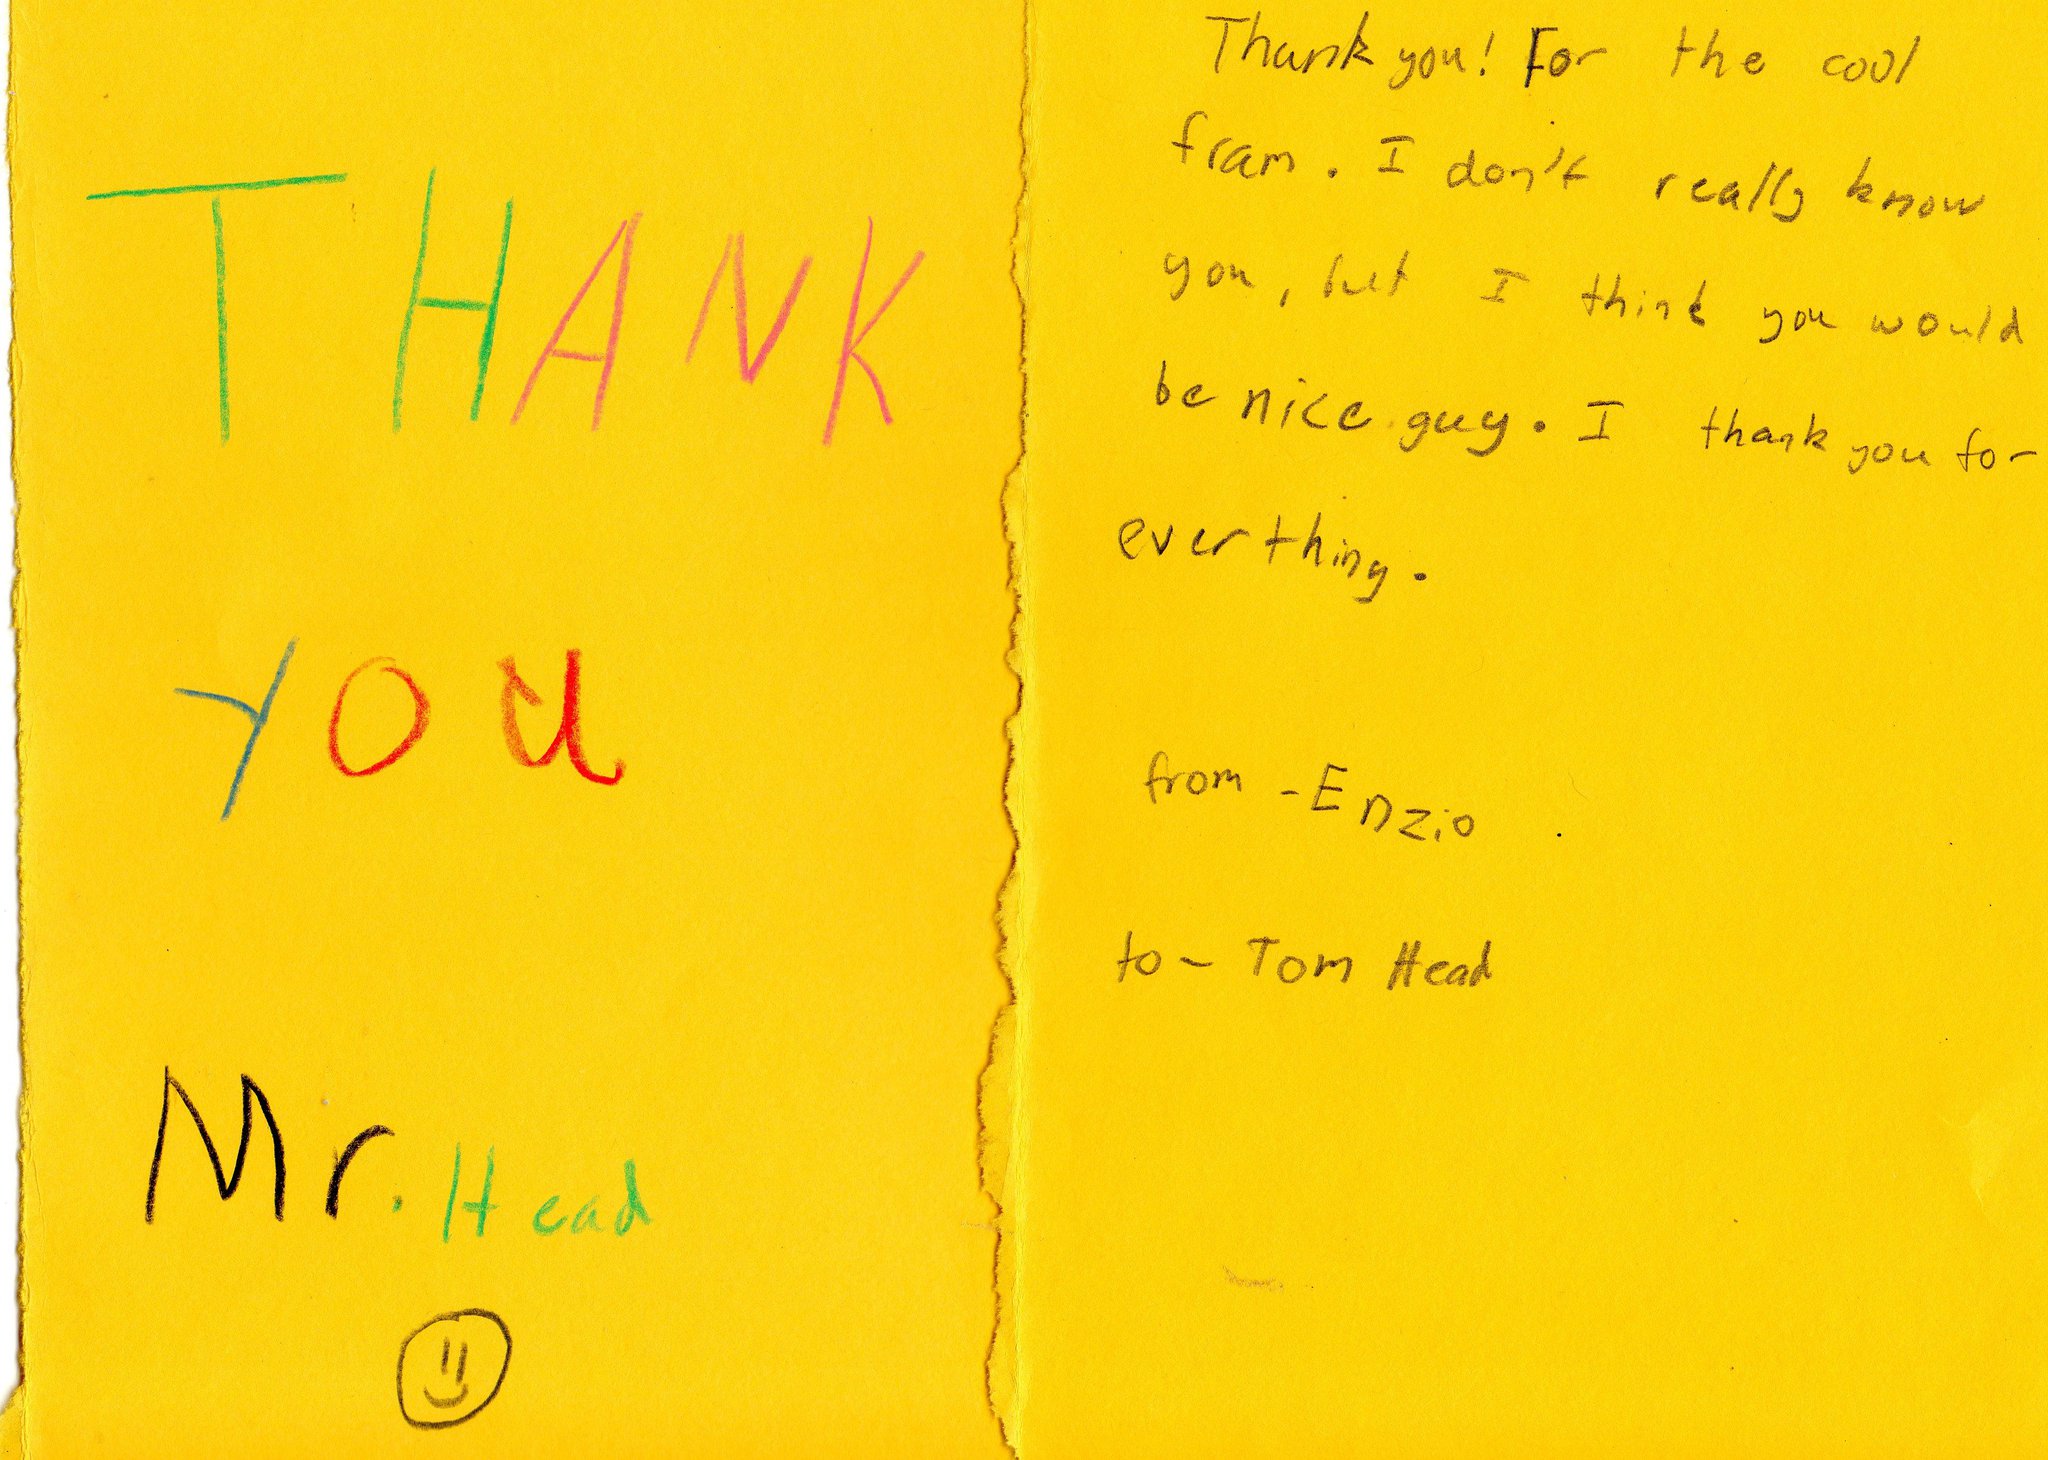 THANK
YOU
Mr. Head
Thank you! For the cool
fram. I don't really know
you, but I think you would
be nice guy. I thank you for
everthing.
from - Enzio
to - Tom Head